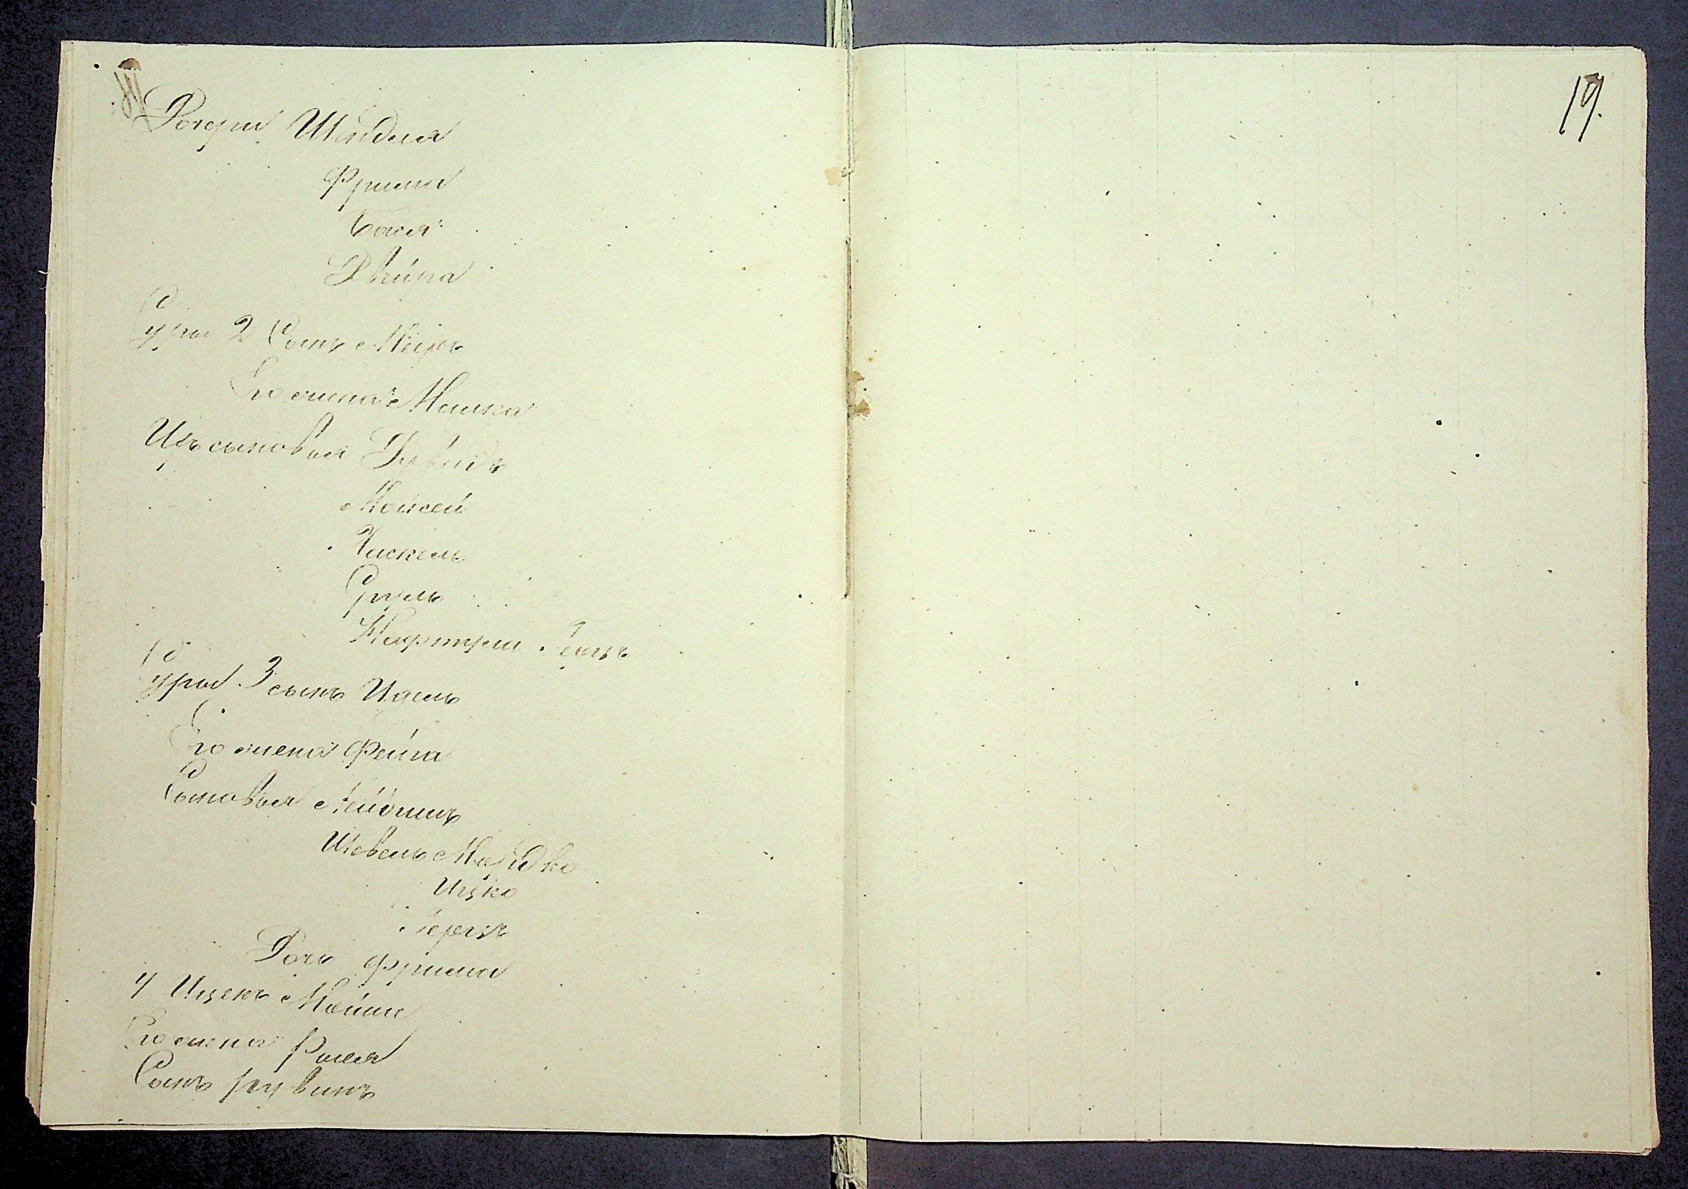 Дочери Шейдля
Фрима
Бася
Двейра
Суры 2 Сынъ Меер
Его жена Машка
Ихъ сыновья Давидъ
Мойсей
Хаскель
Сруль
Нафтула Герцъ
Суры 3 сынъ Идель
Его жена Фейга
Сыновья Лейбишъ
Шевель Мордко
Ицко
Герцъ
Дочь Фрима
4 Ицекъ Мойше
Его жена Рася
Сынъ Рувинъ
19.